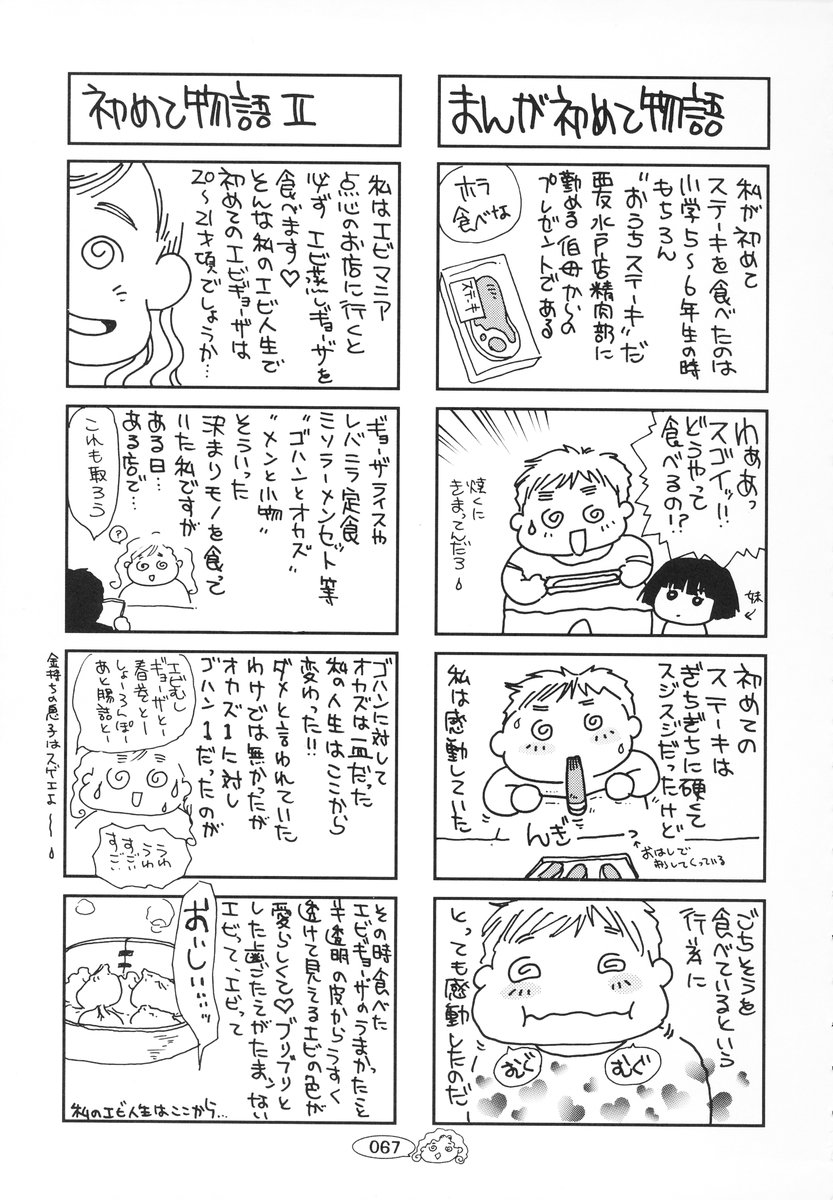 まんが初めて物語
私が初めて
ステーキを食べたのは
小学5〜6年生の時
もちろん
"おうちステーキ"だ
西友水戸店精肉部に
勤める伯母からの
プレゼントである
ホラ
食べな
ステーキ
わぁあっ
スゴイッ!!
どうやって
食べるの!?
焼くに
きまってんだろ
妹
初めての
ステーキは
ぎちぎちに硬くて
スジスジだったけど
私は感動していた
んぎーっ
おはしで
刺してくっている
ごちそうを
食べているという
行為に
とっても感動したのだ
むぐ
むぐ
初めて物語Ⅱ
私はエビマニア
点心のお店に行くと
必ずエビ蒸しギョーザを
食べます♡
そんな私のエビ人生で
初めてのエビギョーザは
20〜21才頃でしょうか…
ギョーザライスや
レバニラ定食
ミソラーメンセット等
"ゴハンとオカズ"
"メンと小物"
そういった
決まりモノを食って
いた私ですが
ある日…
ある店で…
これも取ろう
?
ゴハンに対して
オカズは一皿だった
私の人生はここから
変わった!!
ダメと言われていた
わけでは無かったが
オカズ1に対し
ゴハン1だったのが
エビむし
ギョーザとー
春巻とー
しょーろんぽー
あと腸詰とー
うわ
うわ
すごい
すごい
金持ちの息子はスゲエよ〜
その時食べた
エビギョーザのうまかったこと
半透明の皮からうすく
透けて見えてるエビの色が
愛らしくて♡プリプリと
した歯ごたえがたまんない
エビって、エビって
おいしい…っ
私のエビ人生はここから…
067